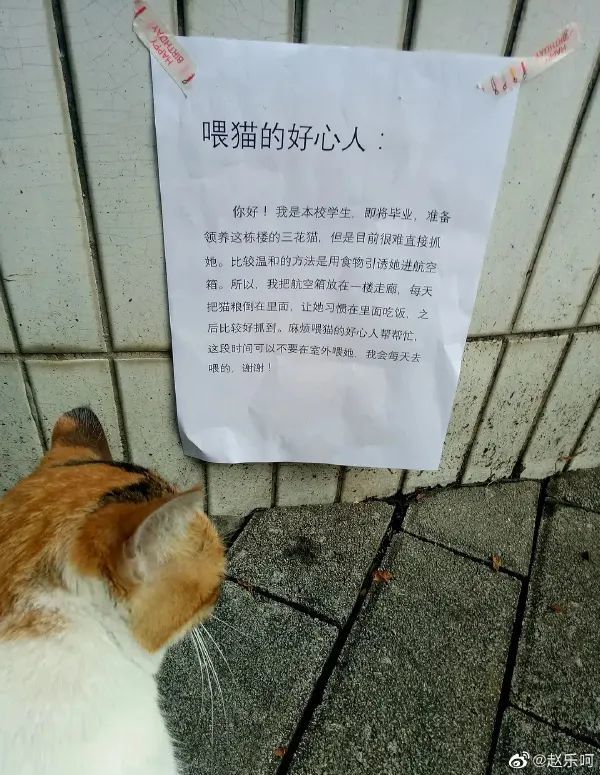 HAPPY BIRTHDAY
HAPPY
喂猫的好心人：
你好！我是本校学生，即将毕业，准备
领养这栋楼的三花猫，但是目前很难直接抓
她。比较温和的方法是用食物引诱她进航空
箱。所以，我把航空箱放在一楼走廊，每天
把猫粮倒在里面，让她习惯在里面吃饭，之
后比较好抓到。麻烦喂猫的好心人帮帮忙，
这段时间可以不要在室外喂她，我会每天去
喂的，谢谢！
@赵乐呵